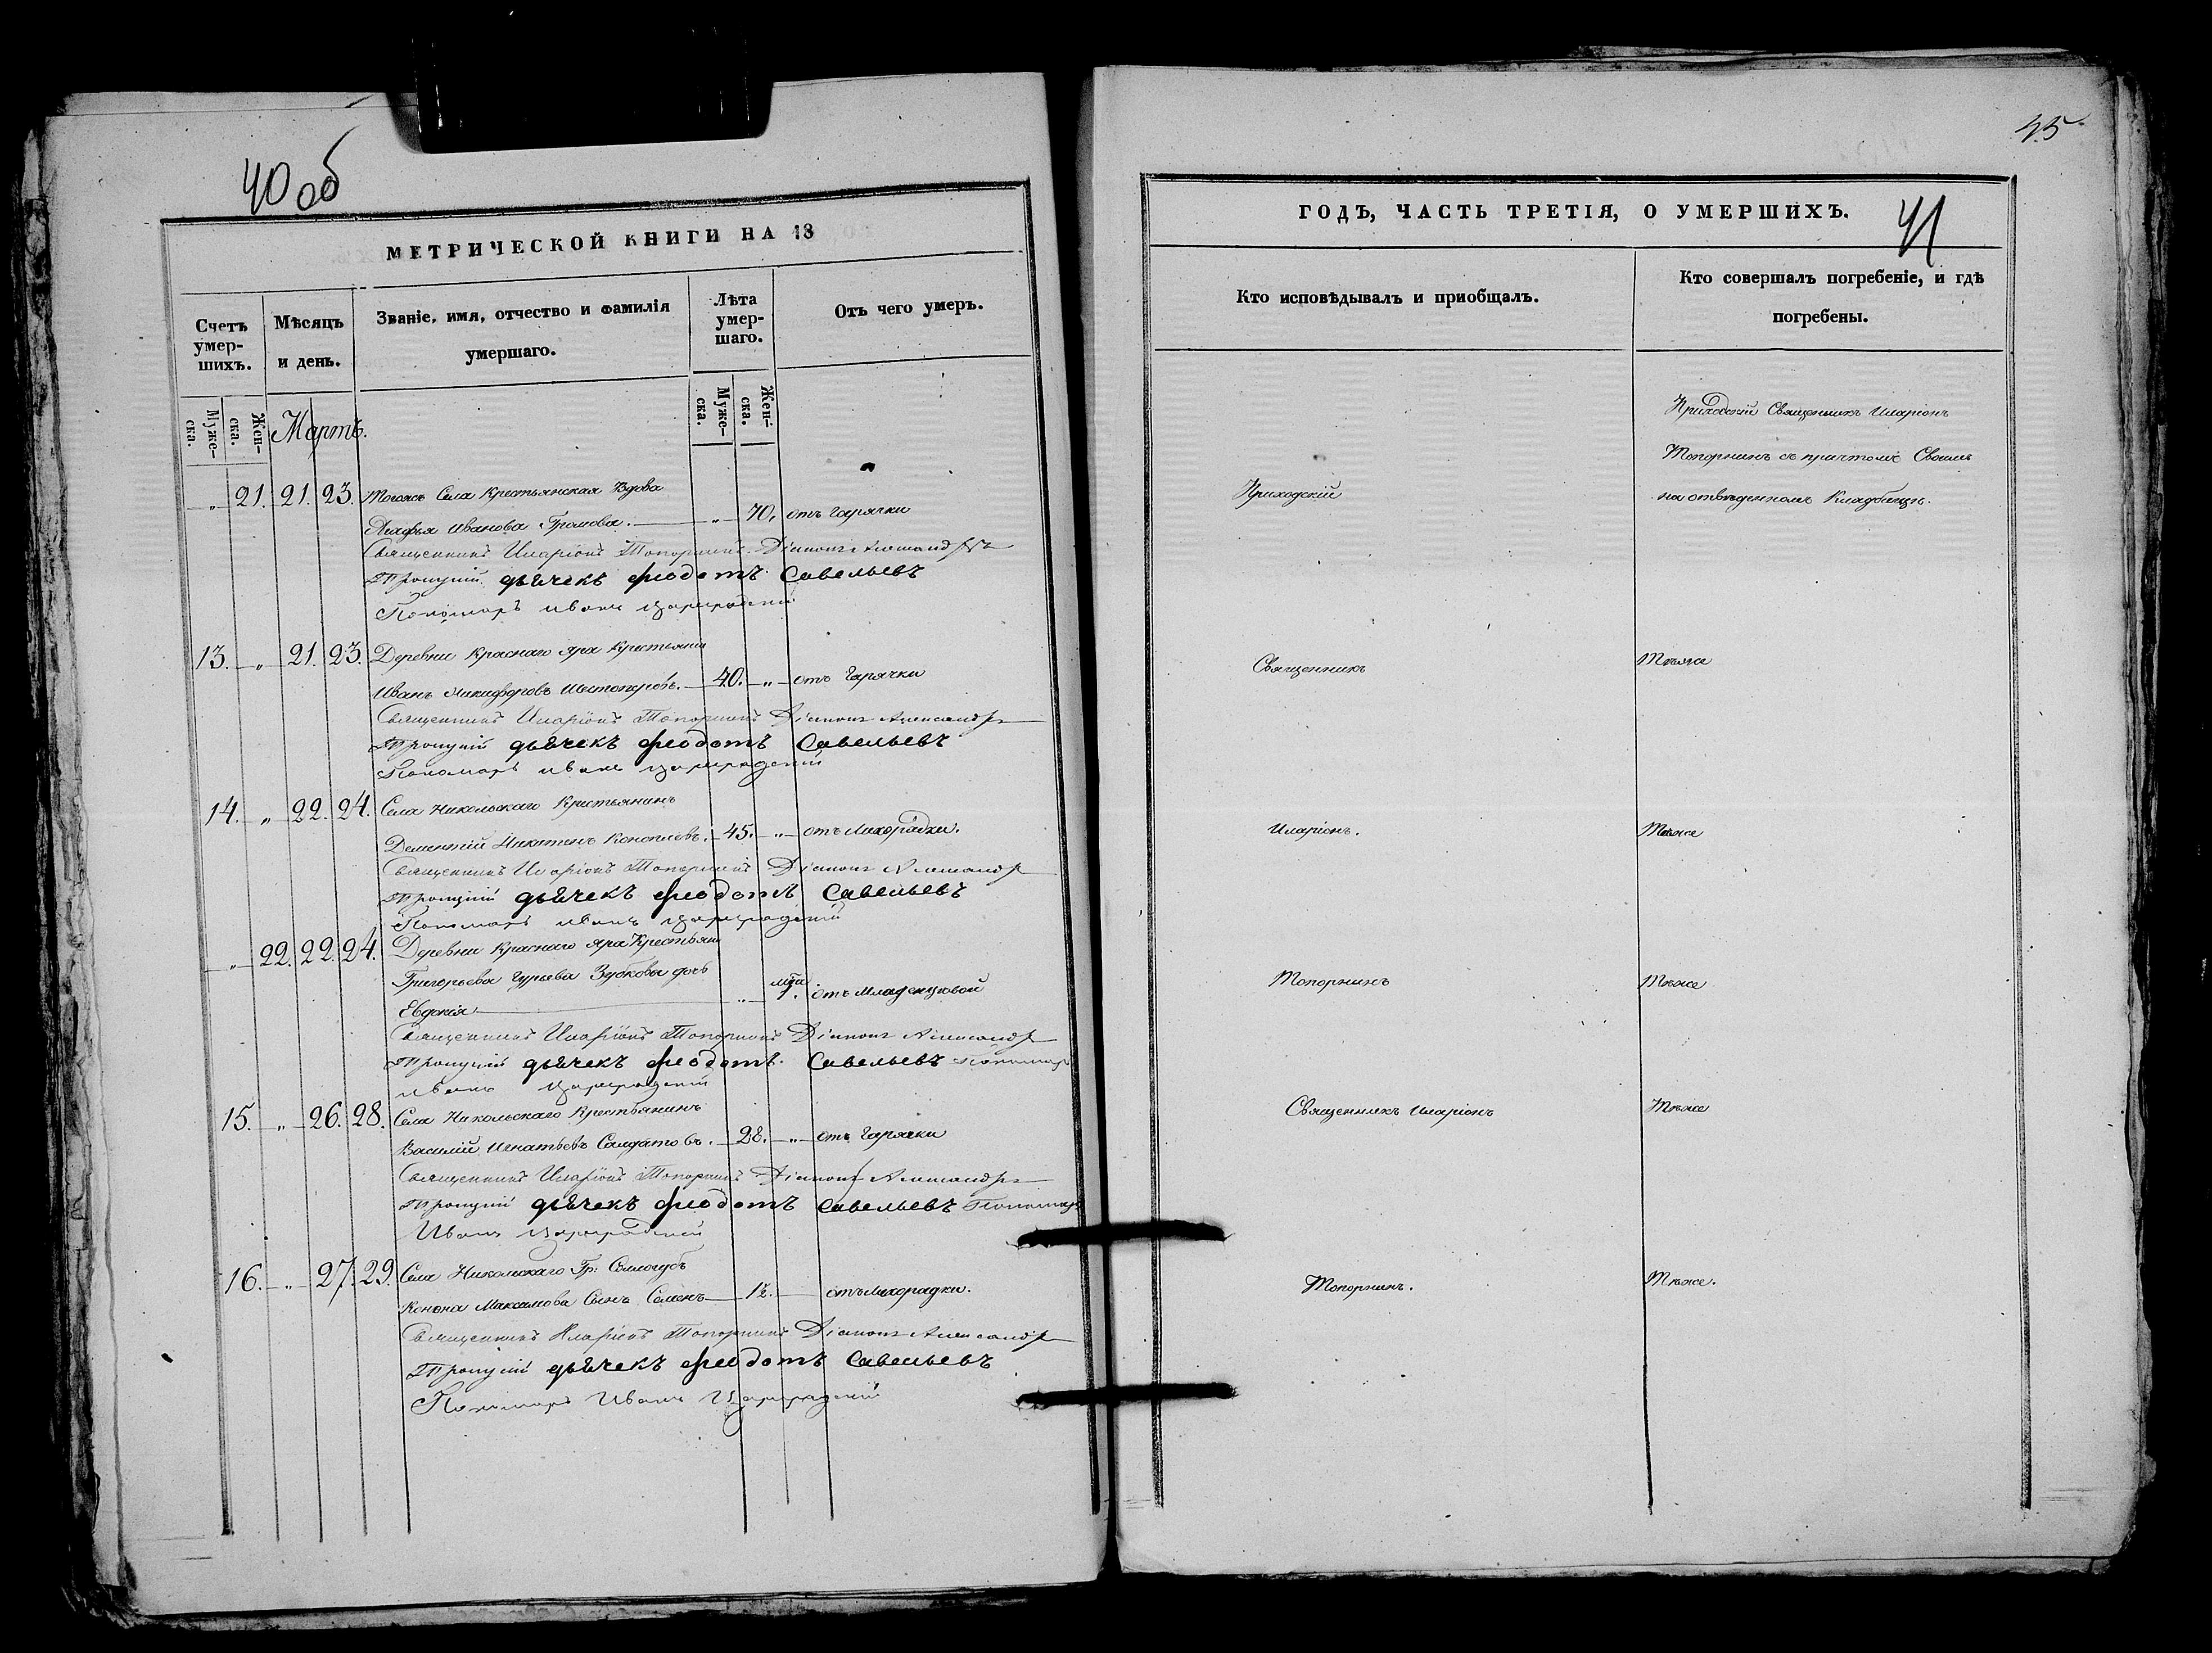 40 об
МЕТРИЧЕСКОЙ КНИГИ НА 18
Счетъ умер-шихъ.
Мѣсяцъ и день.
Званіе, имя, отчество и фамилія умершаго.
Лѣта умер-шаго.
Отъ чего умеръ.
Муже-ска.
Жен-ска.
Мартъ.
Муже-ска.
Жен-ска.
„ 21. 21. 23. Тогожъ Села Крестьянская Вдова
Агафья Иванова Громова. „ 70. отъ горячки
Священникъ Иларіонъ Топорнинъ Діаконъ Александръ
Троицкій дьячекъ Феодотъ Савельевъ
Пономарь Иванъ Цареградскій
13. „ 21. 23. Деревни Краснаго Яра Крестьянин
Иванъ Никифоровъ Шестоперовъ. 40. „ отъ Горячки
Священникъ Иларіонъ Топорнинъ Діаконъ Александръ
Троицкій дьячекъ Феодотъ Савельевъ
Пономарь Иванъ Цареградскій
14. „ 22. 24. Села Никольскаго Крестьянинъ
Дементій Никитинъ Коноплевъ. 45. „ отъ Лихорадки.
Священникъ Иларіонъ Топорнинъ Діаконъ Александръ
Троицкій дьячекъ Феодотъ Савельевъ
Пономарь Иванъ Цареградскій
„ 22. 22. 24. Деревни Краснаго Яра Крестьян
Григорьева Гурьева Зубкова дочь
Евдокія „ 1. отъ Младенцовой
Священникъ Иларіонъ Топорнинъ Діаконъ Александръ
Троицкій дьячекъ Феодотъ Савельевъ Пономарь
Иванъ Цареградскій
15. „ 26. 28. Села Никольскаго Крестьянинъ
Василій Игнатьевъ Солдатовъ. 28. „ отъ Горячки
Священникъ Иларіонъ Топорнинъ Діаконъ Александръ
Троицкій дьячекъ Феодотъ Савельевъ Пономарь
Иванъ Цареградскій
16. „ 27. 29. Села Никольскаго Гр: Сологубъ
Конона Максимова Сынъ Семенъ отъ лихорадки.
Священникъ Иларіонъ Топорнинъ Діаконъ Александръ
Троицкій дьячекъ Феодотъ Савельевъ
Пономарь Иванъ Цареградскій
45
ГОДЪ, ЧАСТЬ ТРЕТІЯ, О УМЕРШИХЪ.
41
Кто исповѣдывалъ и приобщалъ.
Кто совершалъ погребеніе, и гдѣ погребены.
Приходскій Священникъ Иларіонъ
Топорнинъ съ причтомъ Своимъ
Приходскій на отведенномъ Кладбищѣ.
Священникъ Тѣже
Иларіонъ. Тѣже
Топорнинъ Тѣже
Священникъ Иларіонъ Тѣже
Топорнинъ. Тѣже.